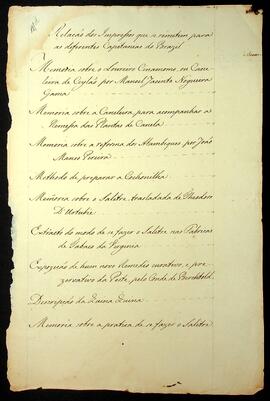 Relacaõ dos Impressos que se remetem para
as diferentes Capitanias do Brazil
Memoria sobre o Loureiro Cinamomo, ou Cane-
leira de Ceylaõ por Manoel Jacinto Nogueira
Gama
Memoria sobre a Caneleira para acompanhar a
Remessa das Plantas de Canela
Memoria sobre a reforma dos Alambiques por Joaõ
Manso Pereira
Methodo de preparar a Cochonilha
Memoria sobre o Salitre trasladada de Theodoro
D'Usturbe
Extracto do modo de se fazer o Salitre nas Fabricas
de Tabaco da Virginia
Expoziçaõ de hum novo Remedio curativo, e pre-
zervativo da Peste, pelo Conde de Berchtold
Descripçaõ da Quina Quina
Memoria sobre a pratica de se fazer o Salitre